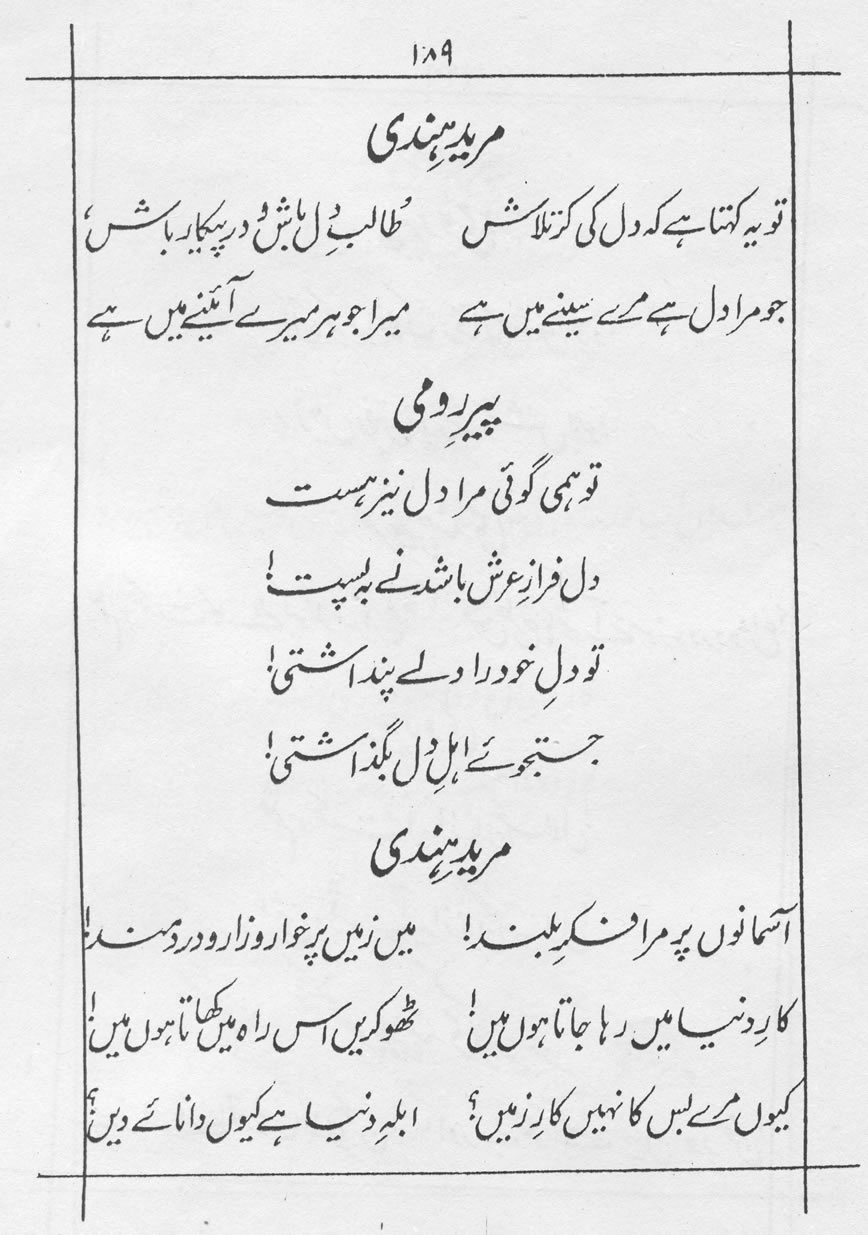 ۱۸۹
مریدِ ہندی
تو یہ کہتا ہے کہ دل کی کر تلاش طالبِ دل باش و در پیکار باش،
جو مرا دل ہے مرے سینے میں ہے میرا جوہر میرے آئینے میں ہے
پیرِ رومی
تو ہمی گوئی مرا دل نیز ہست
دل فرازِ عرش باشد نے بہ پست!
تو دلِ خود را دلے پنداشتی!
جستجوئے اہلِ دل بگذاشتی!
مریدِ ہندی
آسمانوں پر مرا فکرِ بلند! میں زمیں پر خوار و زار و دردمند!
کارِ دنیا میں رہا جاتا ہوں میں! ٹھوکریں اس راہ میں کھاتا ہوں میں!
کیوں مرے بس کا نہیں کارِ زمیں؟ ابلہِ دنیا ہے کیوں دانائے دیں؟